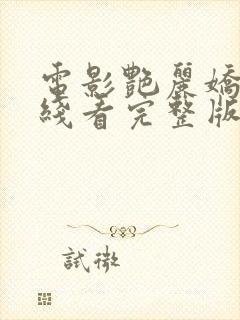 電影艷麗嬌
綫看完整版
試微